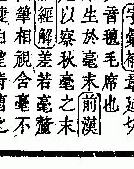 彙補
音毯毛席也
生於毫末前漢
以察秋毫之末
經解差若毫釐
華相視含毫不